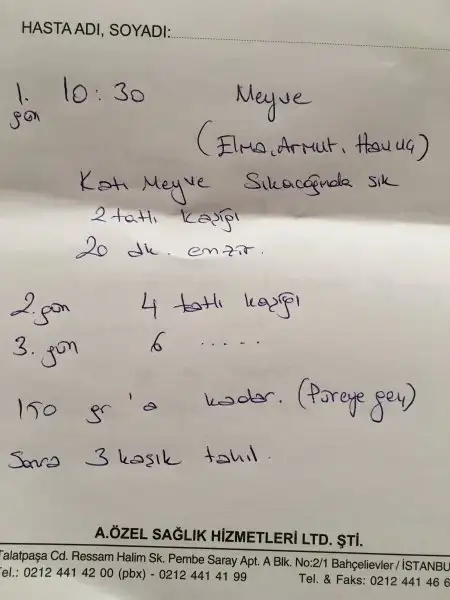 HASTA ADI, SOYADI:
1. gün 10:30 Meyve
(Elma, Armut, Havuç)
Katı Meyve Sıkacağında sık
2 tatlı kaşığı
20 dk. emzir.
2. gün 4 tatlı kaşığı
3. gün 6 .....
150 gr 'a kadar. (Püreye geç)
Sonra 3 kaşık tahıl.
A.ÖZEL SAĞLIK HİZMETLERİ LTD. ŞTİ.
Talatpaşa Cd. Ressam Halim Sk. Pembe Saray Apt. A Blk. No:2/1 Bahçelievler / İSTANBU
Tel.: 0212 441 42 00 (pbx) - 0212 441 41 99 Tel. & Faks: 0212 441 46 6